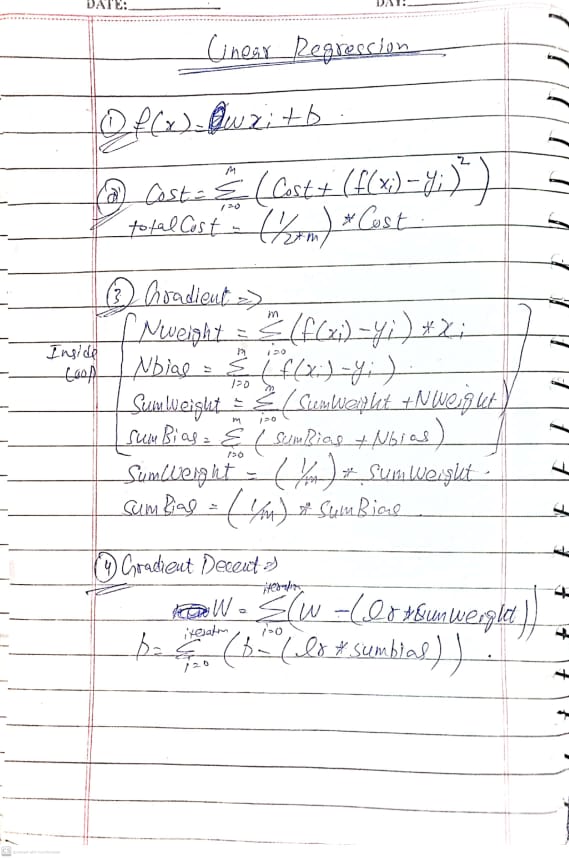 DATE:
DAY:
Linear Regression
① f(x) = wxᵢ + b
② Cost = Σ_{i=0}^{m} (Cost + (f(xᵢ) - yᵢ)²)
total Cost = (1/2*m) * Cost.
③ Gradient =>
Inside Loop
Nweight = Σ_{i=0}^{m} (f(xᵢ) - yᵢ) * xᵢ
Nbias = Σ_{i=0}^{m} (f(xᵢ) - yᵢ)
SumWeight = Σ_{i=0}^{m} (SumWeight + NWeight)
sumBias = Σ_{i=0}^{m} (sumBias + Nbias)
SumWeight = (1/m) * SumWeight.
SumBias = (1/m) * SumBias.
④ Gradient Decent =>
W = Σ_{i=0}^{iteration} (W - (lr * sumweight))
b = Σ_{i=0}^{iteration} (b - (lr * sumbias)).